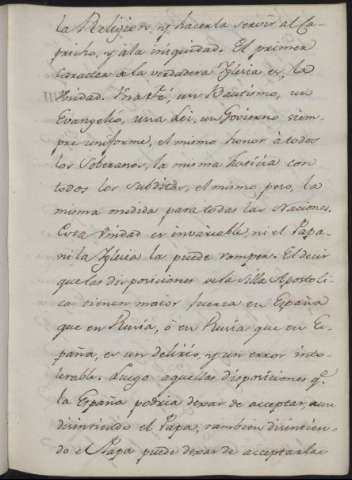 la Religion, y hacerla servir al Ca-
pricho, y á la iniquidad. El primer
caracter de la verdadera Iglesia es la
Unidad. Una Fé, un Bautismo, un
Evangelio, una Lei, un Govierno siem-
pre uniforme, el mismo honor à todos
los Soberanos, la misma Justicia con
todos los subditos, el mismo peso, la
misma medida para todas las Naciones.
Esta Unidad es invariable, ni el Papa
ni la Iglesia la puede romper. El decir
que las disposiciones de la Silla Apostoli-
ca tienen maior fuerza en España
que en Rusia, ó en Rusia que en Es-
paña, es un delirio, y un error into-
lerable. Luego aquellas disposiciones q.
la España podria dexar de aceptar, aun
disintiendo el Papa, tambien disintien-
do el Papa puede dexar de aceptarlas